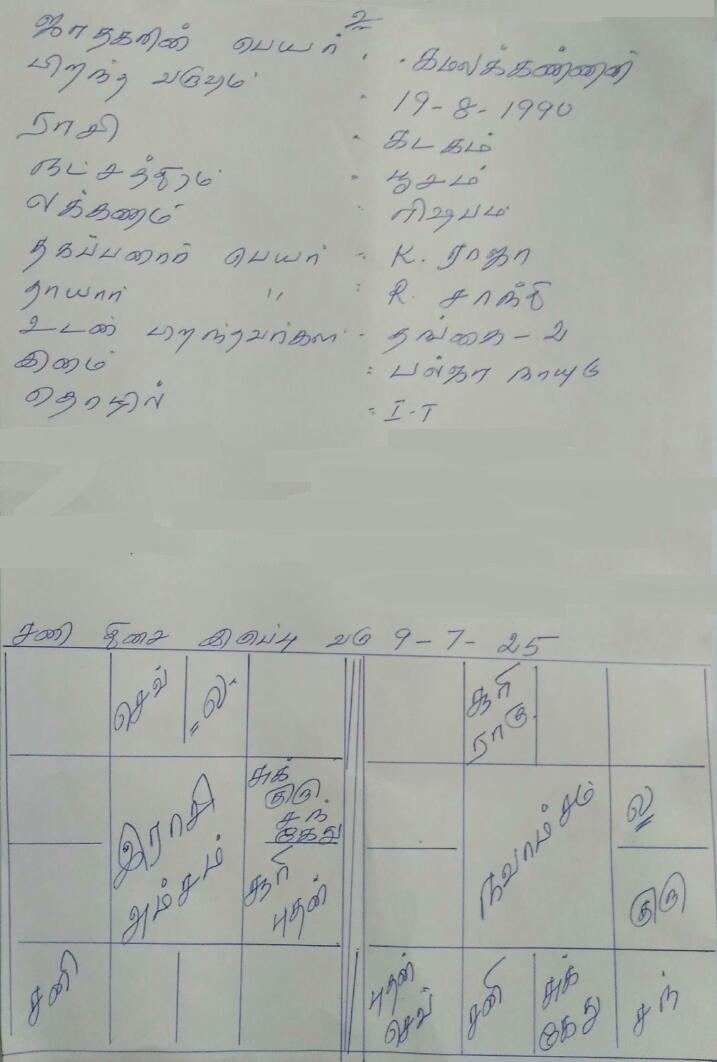 உ
ஜாதகரின் பெயர் : கமலக்கண்ணன்
பிறந்த வருஷம் : 19-8-1990
ராசி : கடகம்
நட்சத்திரம் : பூசம்
லக்கணம் : ரிஷபம்
தகப்பனார் பெயர் - K. ராஜா
தாயார் " : R. சாந்தி
உடன் பிறந்தவர்கள் - தங்கை - 2
இனம் : பல்ஜா நாயுடு
தொழில் : I-T
சனி திசை இருப்பு வரு 9-7-25
செவ் ல
சுக்
குரு
சந்
கேது
இராசி
அம்சம்
சூரி
புதன்
சனி
சூரி
ராகு
நவாம்சம்
ல
குரு
புதன்
செவ்
சனி
சுக்
கேது
சந்